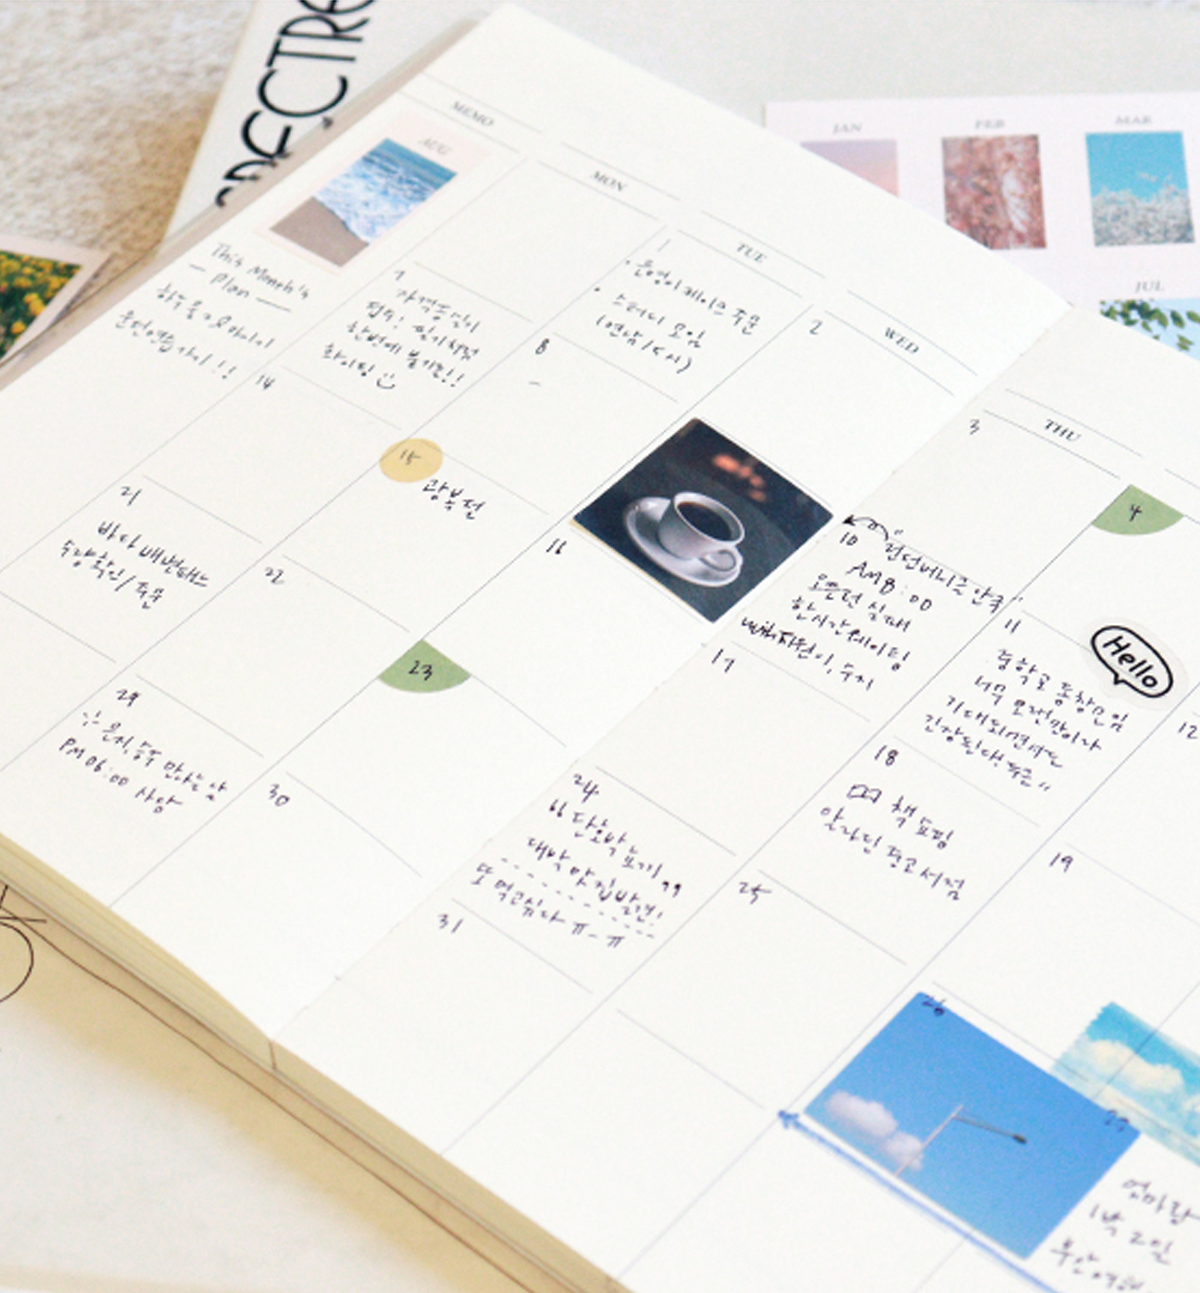 SPECTRE
JAN
FEB
MAR
JUL
MEMO
MON
TUE
WED
THU
AUG
This Month's
— Plan —
운전연습 가기!!
1
· 은영이 케이크 주문
· 스터디 모임
2
3
4
7
자격증 필기
접수! 필기시험
한번에 붙기를!!
화이팅
8
10
"런던베이글 안국"
AM8:00
오픈런 실패
한시간 웨이팅
with 지원이, 수지
11
중학교 동창모임
너무 오랜만이라
기대되면서도
긴장된다 두근"
Hello
12
14
15
광복절
16
17
18
책 쇼핑
알라딘 중고서점
19
21
바다 배변패드
수량확인/주문
22
23
24
"단호박 도기"
대박 맛집발견!
또 먹고싶다 ㅠ_ㅠ
25
26
27
엄마랑
1박 2일
부산여행
29
은지, 승주 만나는 날
PM 06:00 사당
30
31